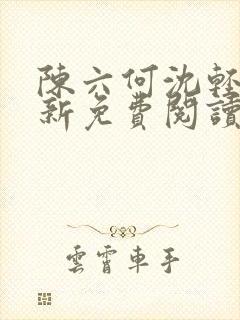 陳六何沈輕
新免費閱讀
雲霄車手